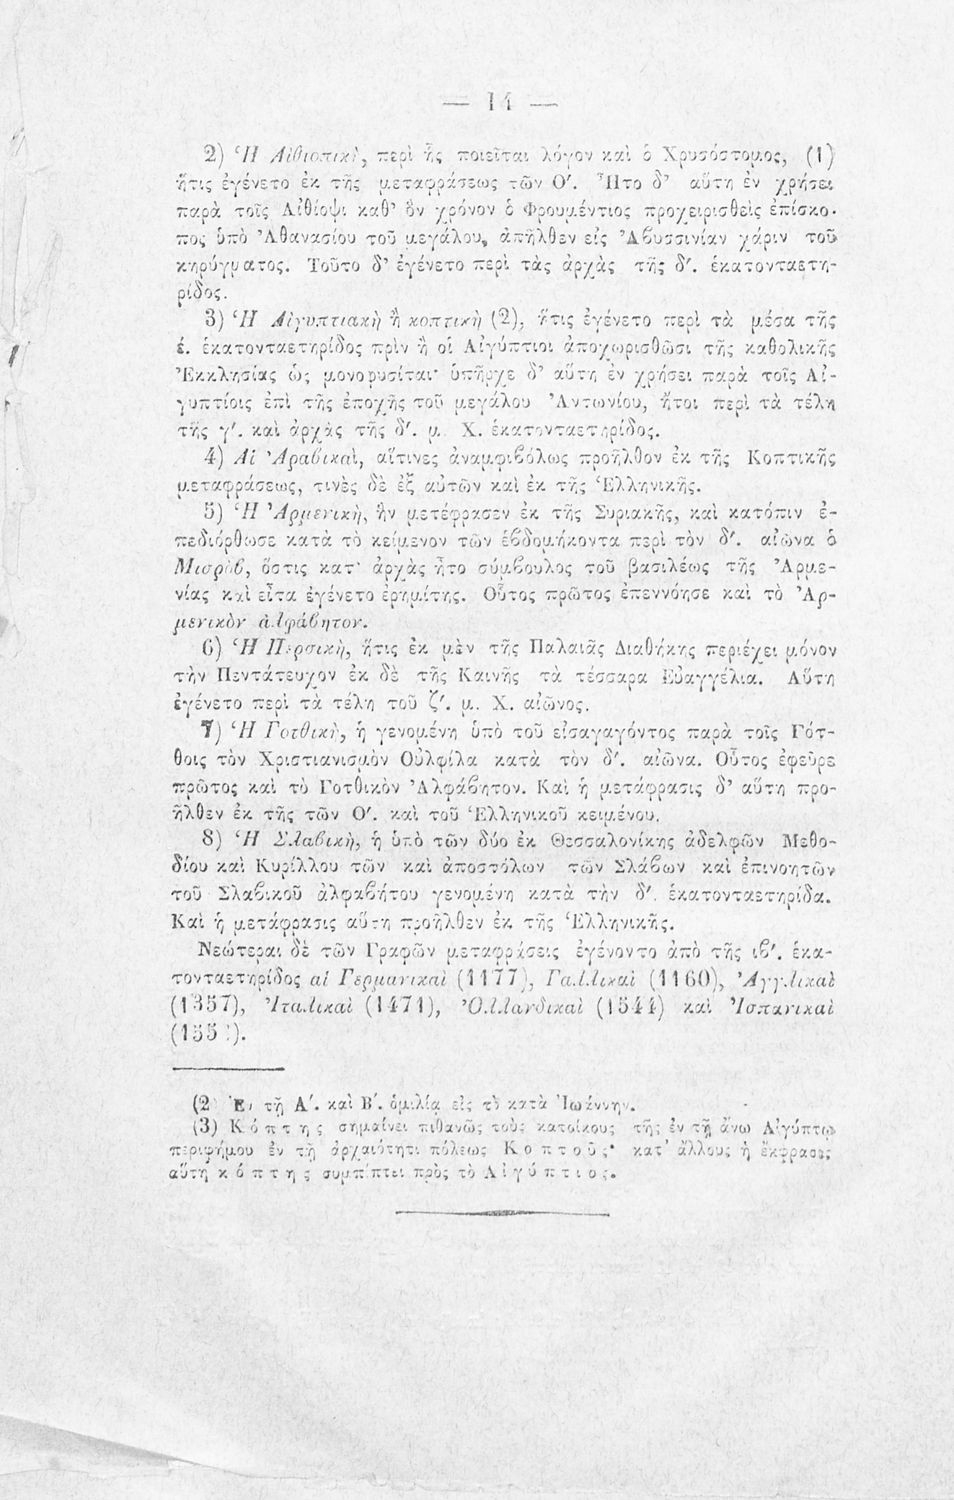 — 14 —
2) Ἡ Αἰθιοπικὴ, περὶ ἧς ποιεῖται λόγον καὶ ὁ Χρυσόστομος, (1)
ἥτις ἐγένετο ἐκ τῆς μεταφράσεως τῶν Ο΄. Ἦτο δ’ αὕτη ἐν χρήσει
παρὰ τοῖς Αἰθίοψι καθ’ ὃν χρόνον ὁ Φρουμέντιος προχειρισθεὶς ἐπίσκο-
πος ὑπὸ Ἀθανασίου τοῦ μεγάλου, ἀπῆλθεν εἰς Ἀβυσσινίαν χάριν τοῦ
κηρύγματος. Τοῦτο δ’ ἐγένετο περὶ τὰς ἀρχὰς τῆς δ΄. ἑκατονταετη-
ρίδος.
3) Ἡ Αἰγυπτιακὴ ἢ κοπτικὴ (2), ἥτις ἐγένετο περὶ τὰ μέσα τῆς
έ. ἑκατονταετηρίδος πρὶν ἢ οἱ Αἰγύπτιοι ἀποχωρισθῶσι τῆς καθολικῆς
Ἐκκλησίας ὡς μονοφυσίται· ὑπῆρχε δ’ αὕτη ἐν χρήσει παρὰ τοῖς Αἰ-
γυπτίοις ἐπὶ τῆς ἐποχῆς τοῦ μεγάλου Ἀντωνίου, ἤτοι περὶ τὰ τέλη
τῆς γ΄. καὶ ἀρχὰς τῆς δ΄. μ. Χ. ἑκατονταετηρίδος.
4) Αἱ Ἀραβικαὶ, αἵτινες ἀναμφιβόλως προῆλθον ἐκ τῆς Κοπτικῆς
μεταφράσεως, τινὲς δὲ ἐξ αὐτῶν καὶ ἐκ τῆς Ἑλληνικῆς.
5) Ἡ Ἀρμενικὴ, ἣν μετέφρασεν ἐκ τῆς Συριακῆς, καὶ κατόπιν ἐ-
πεδιόρθωσε κατὰ τὸ κείμενον τῶν ἑβδομήκοντα περὶ τὸν δ΄. αἰῶνα ὁ
Μισρὸβ, ὅστις κατ’ ἀρχὰς ἦτο σύμβουλος τοῦ βασιλέως τῆς Ἀρμε-
νίας καὶ εἶτα ἐγένετο ἐρημίτης. Οὗτος πρῶτος ἐπεννόησε καὶ τὸ Ἀρ-
μενικὸν ἀλφάβητον.
6) Ἡ Περσικὴ, ἥτις ἐκ μὲν τῆς Παλαιᾶς Διαθήκης περιέχει μόνον
τὴν Πεντάτευχον ἐκ δὲ τῆς Καινῆς τὰ τέσσαρα Εὐαγγέλια. Αὕτη
ἐγένετο περὶ τὰ τέλη τοῦ ζ΄. μ. Χ. αἰῶνος.
7) Ἡ Γοτθικὴ, ἡ γενομένη ὑπὸ τοῦ εἰσαγαγόντος παρὰ τοῖς Γότ-
θοις τὸν Χριστιανισμὸν Οὐλφίλα κατὰ τὸν δ΄. αἰῶνα. Οὗτος ἐφεῦρε
πρῶτος καὶ τὸ Γοτθικὸν Ἀλφάβητον. Καὶ ἡ μετάφρασις δ’ αὕτη προ-
ῆλθεν ἐκ τῆς τῶν Ο΄. καὶ τοῦ Ἑλληνικοῦ κειμένου.
8) Ἡ Σλαβικὴ, ἡ ὑπὸ τῶν δύο ἐκ Θεσσαλονίκης ἀδελφῶν Μεθο-
δίου καὶ Κυρίλλου τῶν καὶ ἀποστόλων τῶν Σλάβων καὶ ἐπινοητῶν
τοῦ Σλαβικοῦ ἀλφαβήτου γενομένη κατὰ τὴν δ΄. ἑκατονταετηρίδα.
Καὶ ἡ μετάφρασις αὕτη προῆλθεν ἐκ τῆς Ἑλληνικῆς.
Νεώτεραι δὲ τῶν Γραφῶν μεταφράσεις ἐγένοντο ἀπὸ τῆς ιβ΄. ἑκα-
τονταετηρίδος αἱ Γερμανικαὶ (1177), Γαλλικαὶ (1160), Ἀγγλικαὶ
(1357), Ἰταλικαὶ (1471), Ὀλλανδικαὶ (1544) καὶ Ἰσπανικαὶ
(2) Ἐν τῇ Α΄. καὶ Β΄. ὁμιλίᾳ εἰς τὸ κατὰ Ἰωάννην.
(3) Κόπτης σημαίνει πιθανῶς τοὺς κατοίκους τῆς ἐν τῇ ἄνω Αἰγύπτῳ
περιφήμου ἐν τῇ ἀρχαιότητι πόλεως Κοπτοῦς· κατ’ ἄλλους ἡ ἔκφρασις
αὕτη κόπτης συμπίπτει πρὸς τὸ Αἰγύπτιος.